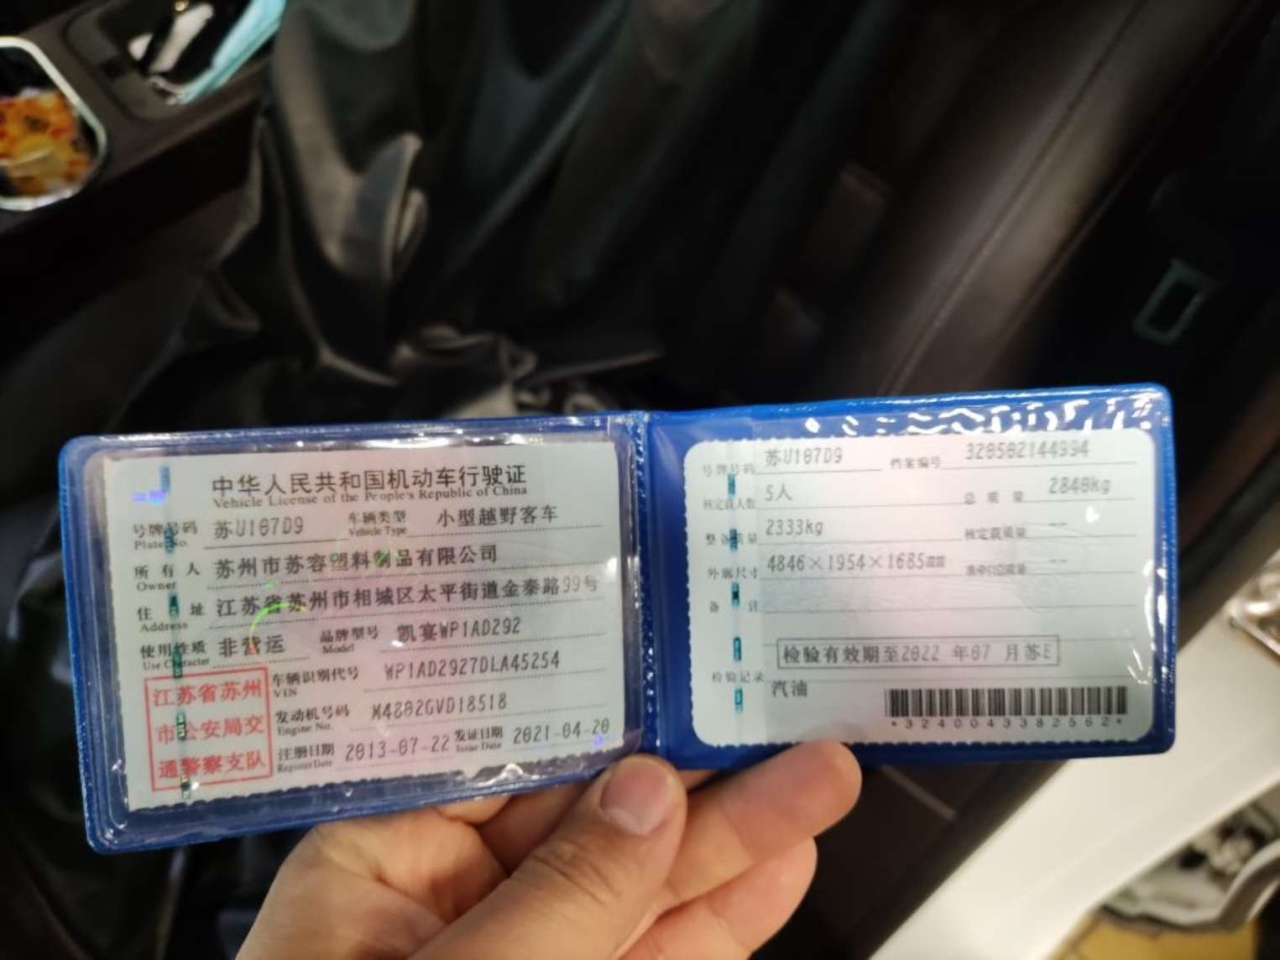 中华人民共和国机动车行驶证
Vehicle License of the People's Republic of China
号牌号码 苏U187D9 车辆类型 小型越野客车
Plate No. Vehicle Type
所有人 苏州市苏容塑料制品有限公司
Owner
住址 江苏省苏州市相城区太平街道金泰路99号
Address
使用性质 非营运 品牌型号 凯宴WP1AD292
Use Character Model
江苏省苏州
市公安局交
通警察支队
车辆识别代号 WP1AD2927DLA45254
VIN
发动机号码 M4802GVD18518
Engine No.
注册日期 2013-07-22 发证日期 2021-04-20
Register Date Issue Date
号牌号码 苏U187D9 档案编号 320502144994
核定载人数 5人 总质量 2840kg
整备质量 2333kg 核定载质量 --
外廓尺寸 4846×1954×1685mm 准牵引总质量 --
备注
检验有效期至2022年07月苏E
检验记录
汽油
*3240043382562*